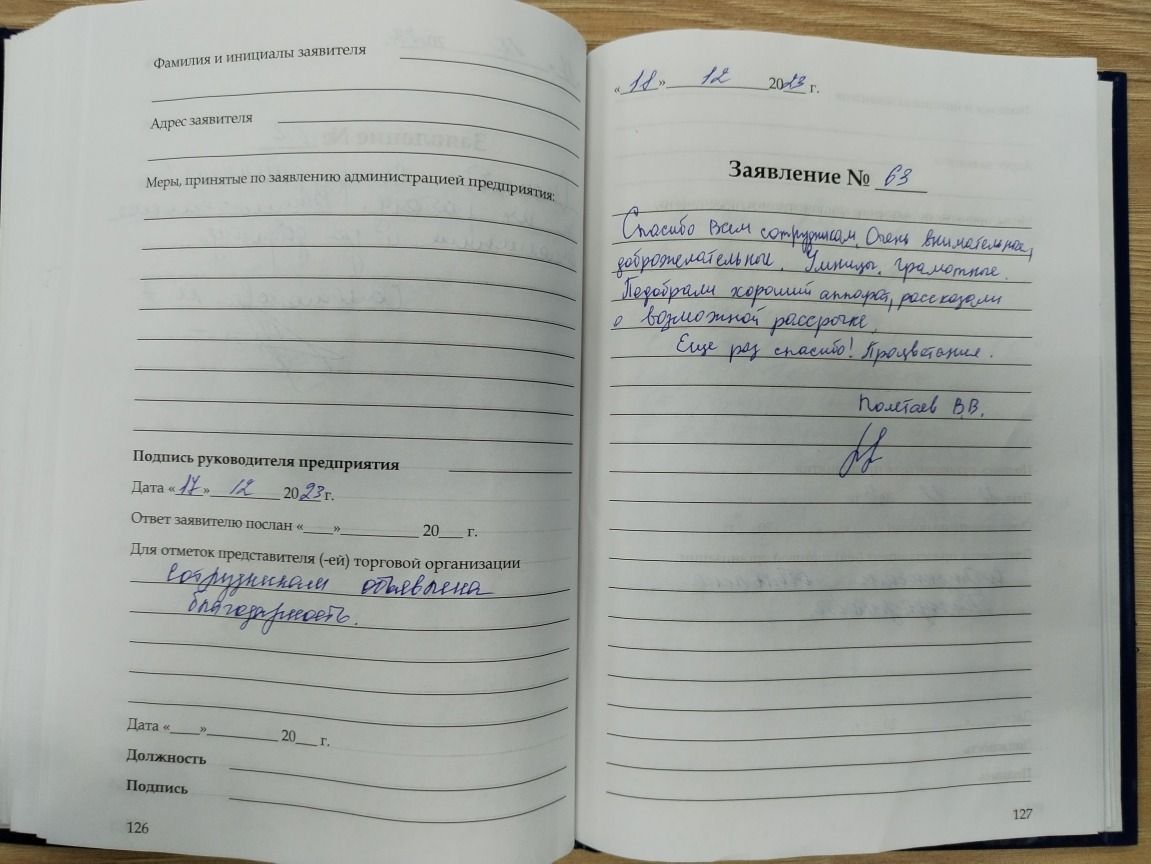 Фамилия и инициалы заявителя
Адрес заявителя
Меры, принятые по заявлению администрацией предприятия:
Подпись руководителя предприятия
Дата «17» 12 2023 г.
Ответ заявителю послан «___»__________ 20___ г.
Для отметок представителя (-ей) торговой организации
сотрудникам объявлена
благодарность.
Дата «___»__________ 20___ г.
Должность
Подпись
126
«18» 12 2023 г.
Заявление № 63
Спасибо Вам сотрудникам. Очень внимательные,
доброжелательные. Умницы. грамотные.
Подобрали хороший аппарат, рассказали
о возможной рассрочке.
Еще раз спасибо! Процветания.
Полетаев В.В.
127